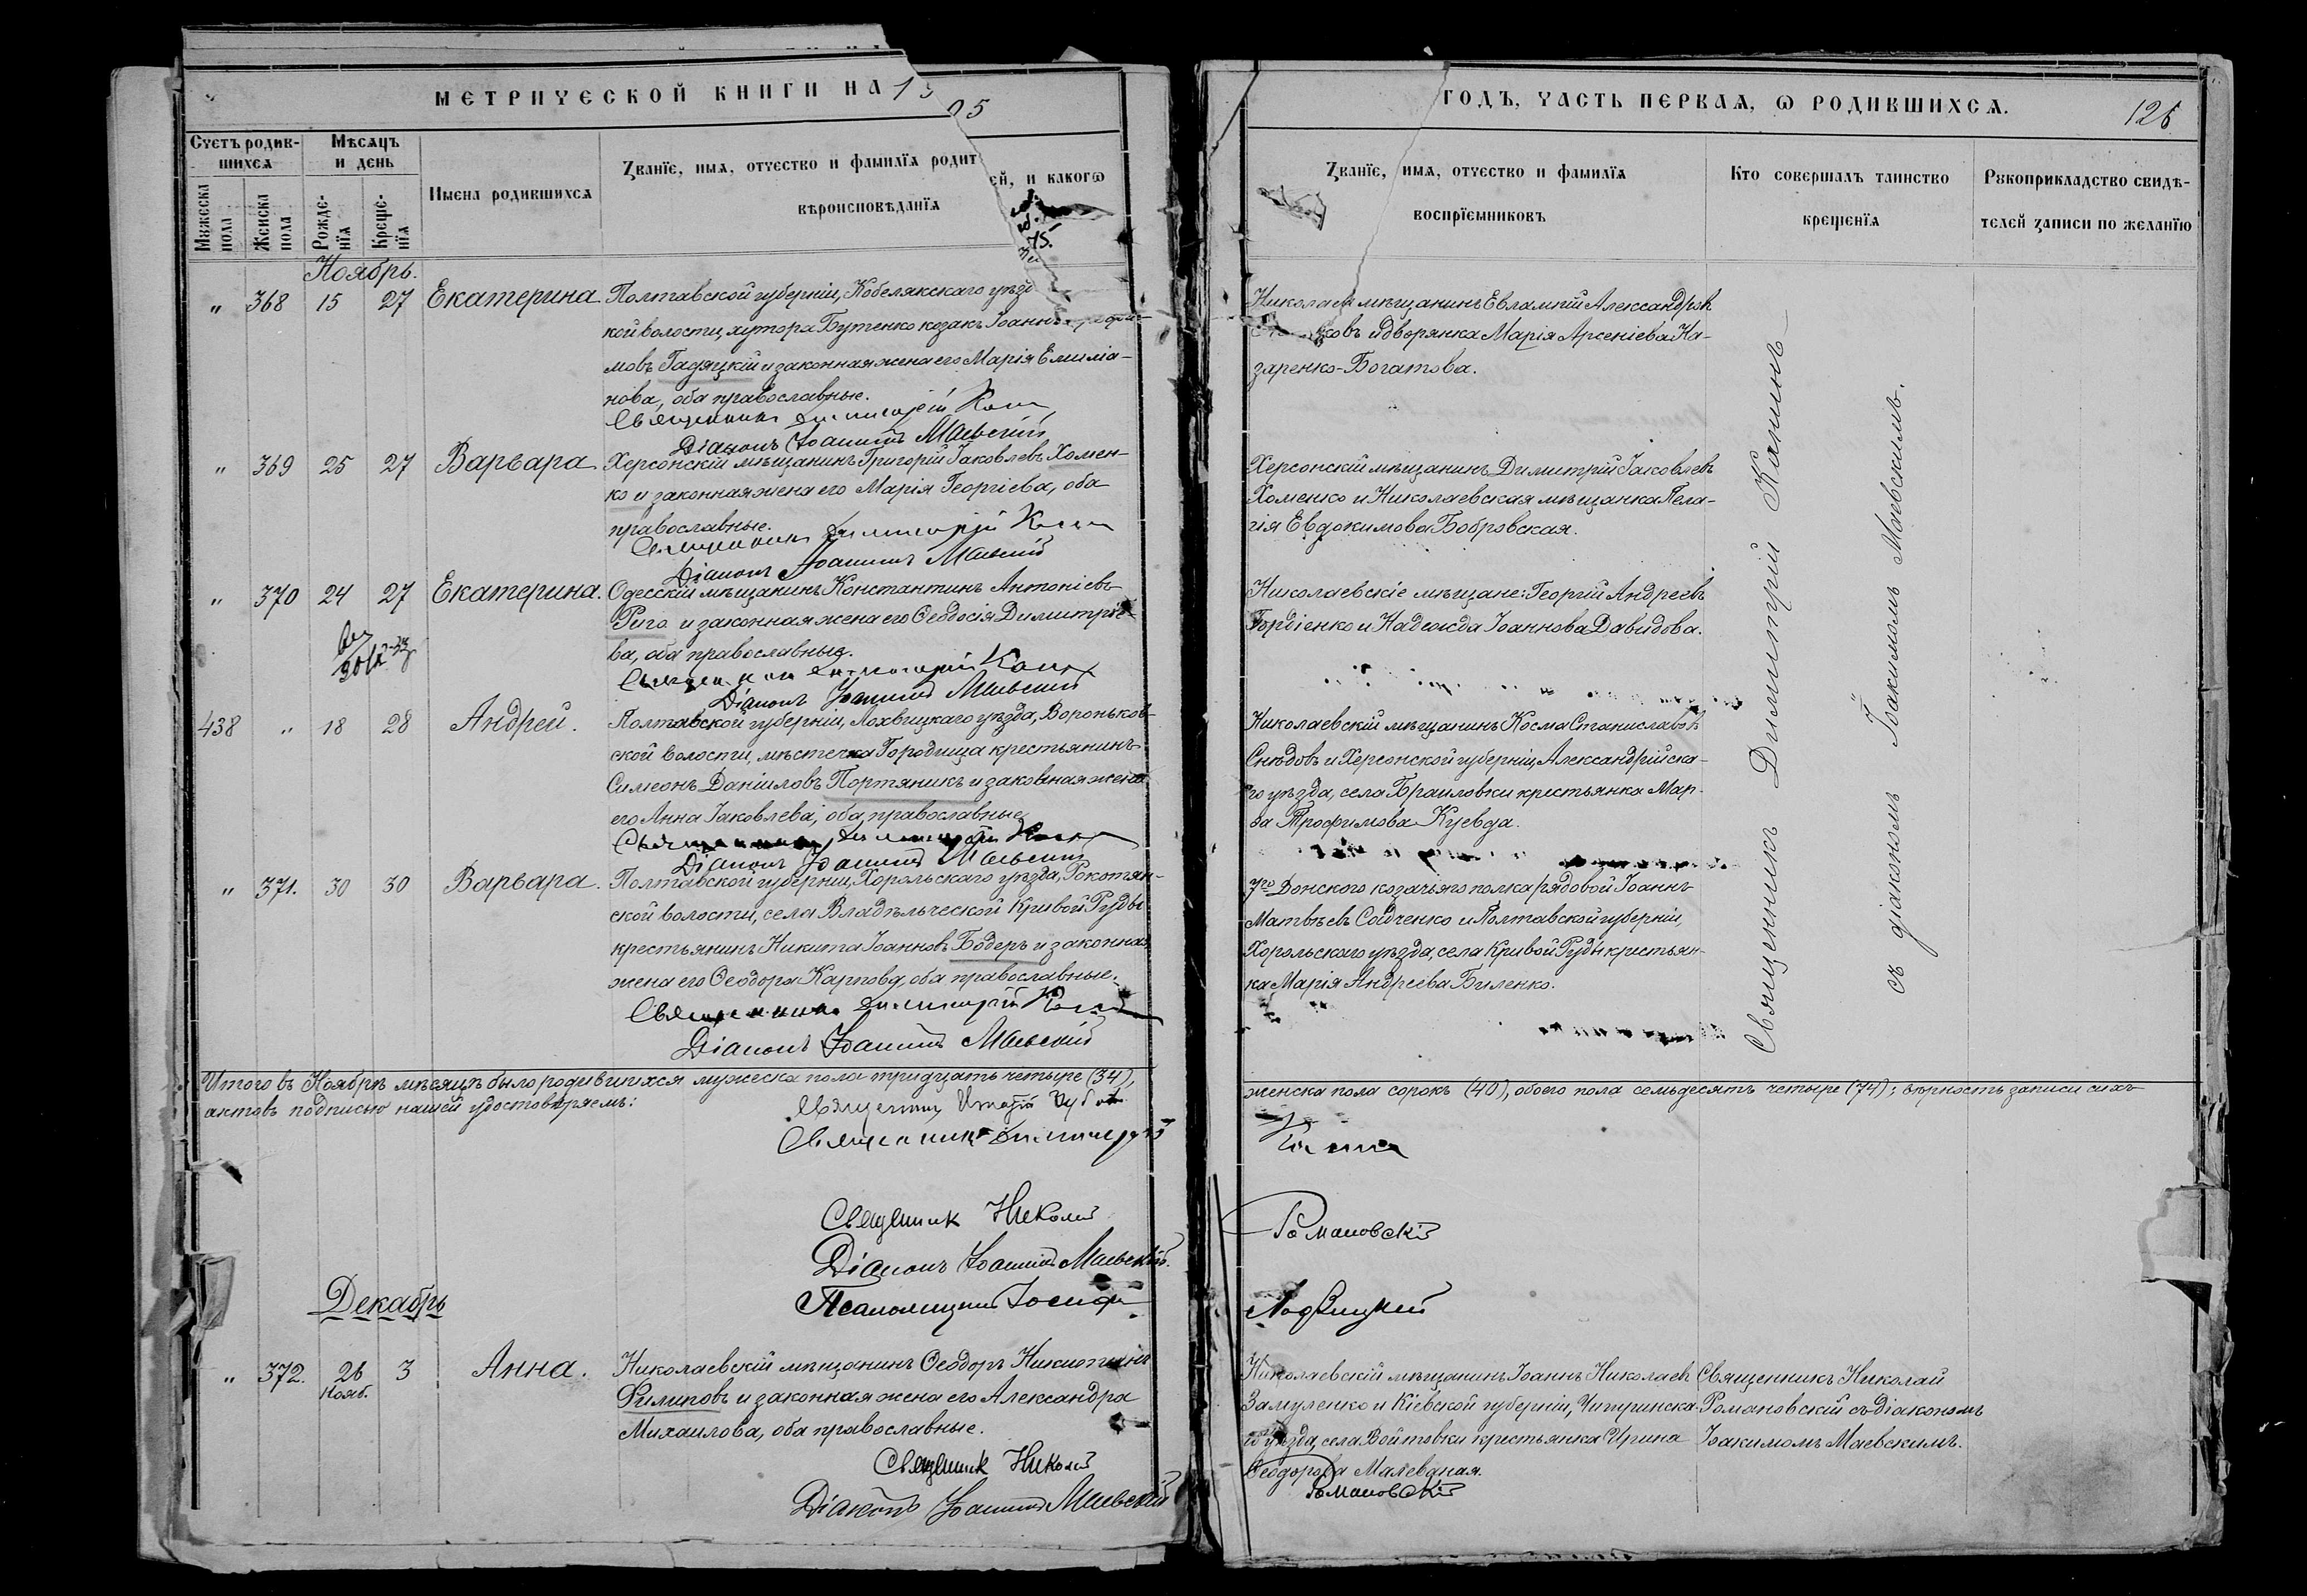 МЕТРИЧЕСКОЙ КНИГИ НА 1905
ГОДЪ, ЧАСТЬ ПЕРВАЯ, Ѡ РОДИВШИХСЯ.
126
Счетъ родив-
шихся
Мужеска пола
Женска пола
Мѣсяцъ
и день
Рожде-
нїя
Креще-
нїя
Имена родившихся
Званїе, имя, отчество и фамилїя родит ей, и какогѡ
вѣроисповѣданїя
Званїе, имя, отчество и фамилїя
воспрїемниковъ
Кто совершалъ таинство
крещенїя
Рукоприкладство свидѣ-
телей записи по желанїю
Ноябрь.
" 368 15 27 Екатерина
Полтавской губерніи, Кобелякскаго уѣзд
кой волости, хутора Бутенко козакъ Іоаннъ
мовъ Гадяцкій и законная жена его Марія Емиліа-
нова, оба православные.
Священникъ Димитрій Капи
Діаконъ Іоакимъ Маевскій
мѣщанинъ Евлампій Александровъ
ковъ и дворянка Марія Арсеніева На-
заренко-Богатова.
" 369 25 27 Варвара
Херсонскій мѣщанинъ Григорій Іаковлевъ Хомен-
ко и законная жена его Марія Георгіева, оба
православные.
Священникъ Димитрій Капи
Діаконъ Іоакимъ Маевскій
Херсонскій мѣщанинъ Димитрій Іаковлевъ
Хоменко и Николаевская мѣщанка Пела-
гія Евдокимова Бобровская.
" 370 24 27 Екатерина.
Одесскій мѣщанинъ Константинъ Антоніевъ
Рига и законная жена его Ѳеодосія Димитріе-
ва, оба православные.
Священникъ Димитрій Капи
Діаконъ Іоакимъ Маевскій
Николаевскіе мѣщане: Георгій Андреевъ
Гордіенко и Надежда Іоаннова Давидова.
438 " 18 28 Андрей.
Полтавской губерніи, Лохвицкаго уѣзда, Вороньков-
ской волости, мѣстечка Городища крестьянинъ
Симеонъ Даніиловъ Портяникъ и законная жена
его Анна Іаковлева, оба православные
Священникъ Димитрій Капи
Діаконъ Іоакимъ Маевскій
Николаевскій мѣщанинъ Косма Станиславовъ
Снѣдовъ и Херсонской губерніи, Александрійска-
го уѣзда, села Браиловки крестьянка Мар-
ѳа Трофимова Куевда.
" 371. 30 30 Варвара.
Полтавской губерніи, Хорольскаго уѣзда, Рокотян-
ской волости, села Владѣльческой Кривой Руды
крестьянинъ Никита Іоанновъ Бодеръ и законная
жена его Ѳеодора Карпова, оба православные.
Священникъ Димитрій Капи
Діаконъ Іоакимъ Маевскій
7го Донского козачьяго полка рядовой Іоаннъ
Матвѣевъ Сайченко и Полтавской губерніи,
Хорольскаго уѣзда, села Кривой Руды крестьян-
ка Марія Андреева Биленко.
Священникъ Димитрій Капинъ
съ діакономъ Іоакимомъ Маевскимъ.
Итого въ Ноябрѣ мѣсяцѣ было родившихся мужеска пола тридцать четыре (34),
женска пола сорокъ (40), обоего пола семьдесятъ четыре (74); вѣрность записи сихъ
актовъ подписью нашей удостовѣряемъ:
Священникъ Димитрій
Священник Николай Романовскій
Діаконъ Іоакимъ Маевскій.
Псаломщикъ Іосифъ Лодвицкій
Декабрь
" 372. 26 Нояб. 3 Анна.
Николаевскій мѣщанинъ Ѳеодоръ Никитинъ
Филиповъ и законная жена его Александра
Михаилова, оба православные.
Священник Николай Романовскій
Діаконъ Іоакимъ Маевскій
Николаевскій мѣщанинъ Іоаннъ Николаевъ
Замуленко и Кіевской губерніи, Чигиринска-
го уѣзда, села Войтовки крестьянка Ирина
Ѳеодорова Малеваная.
Священникъ Николай
Романовскій съ діакономъ
Іоакимомъ Маевскимъ.